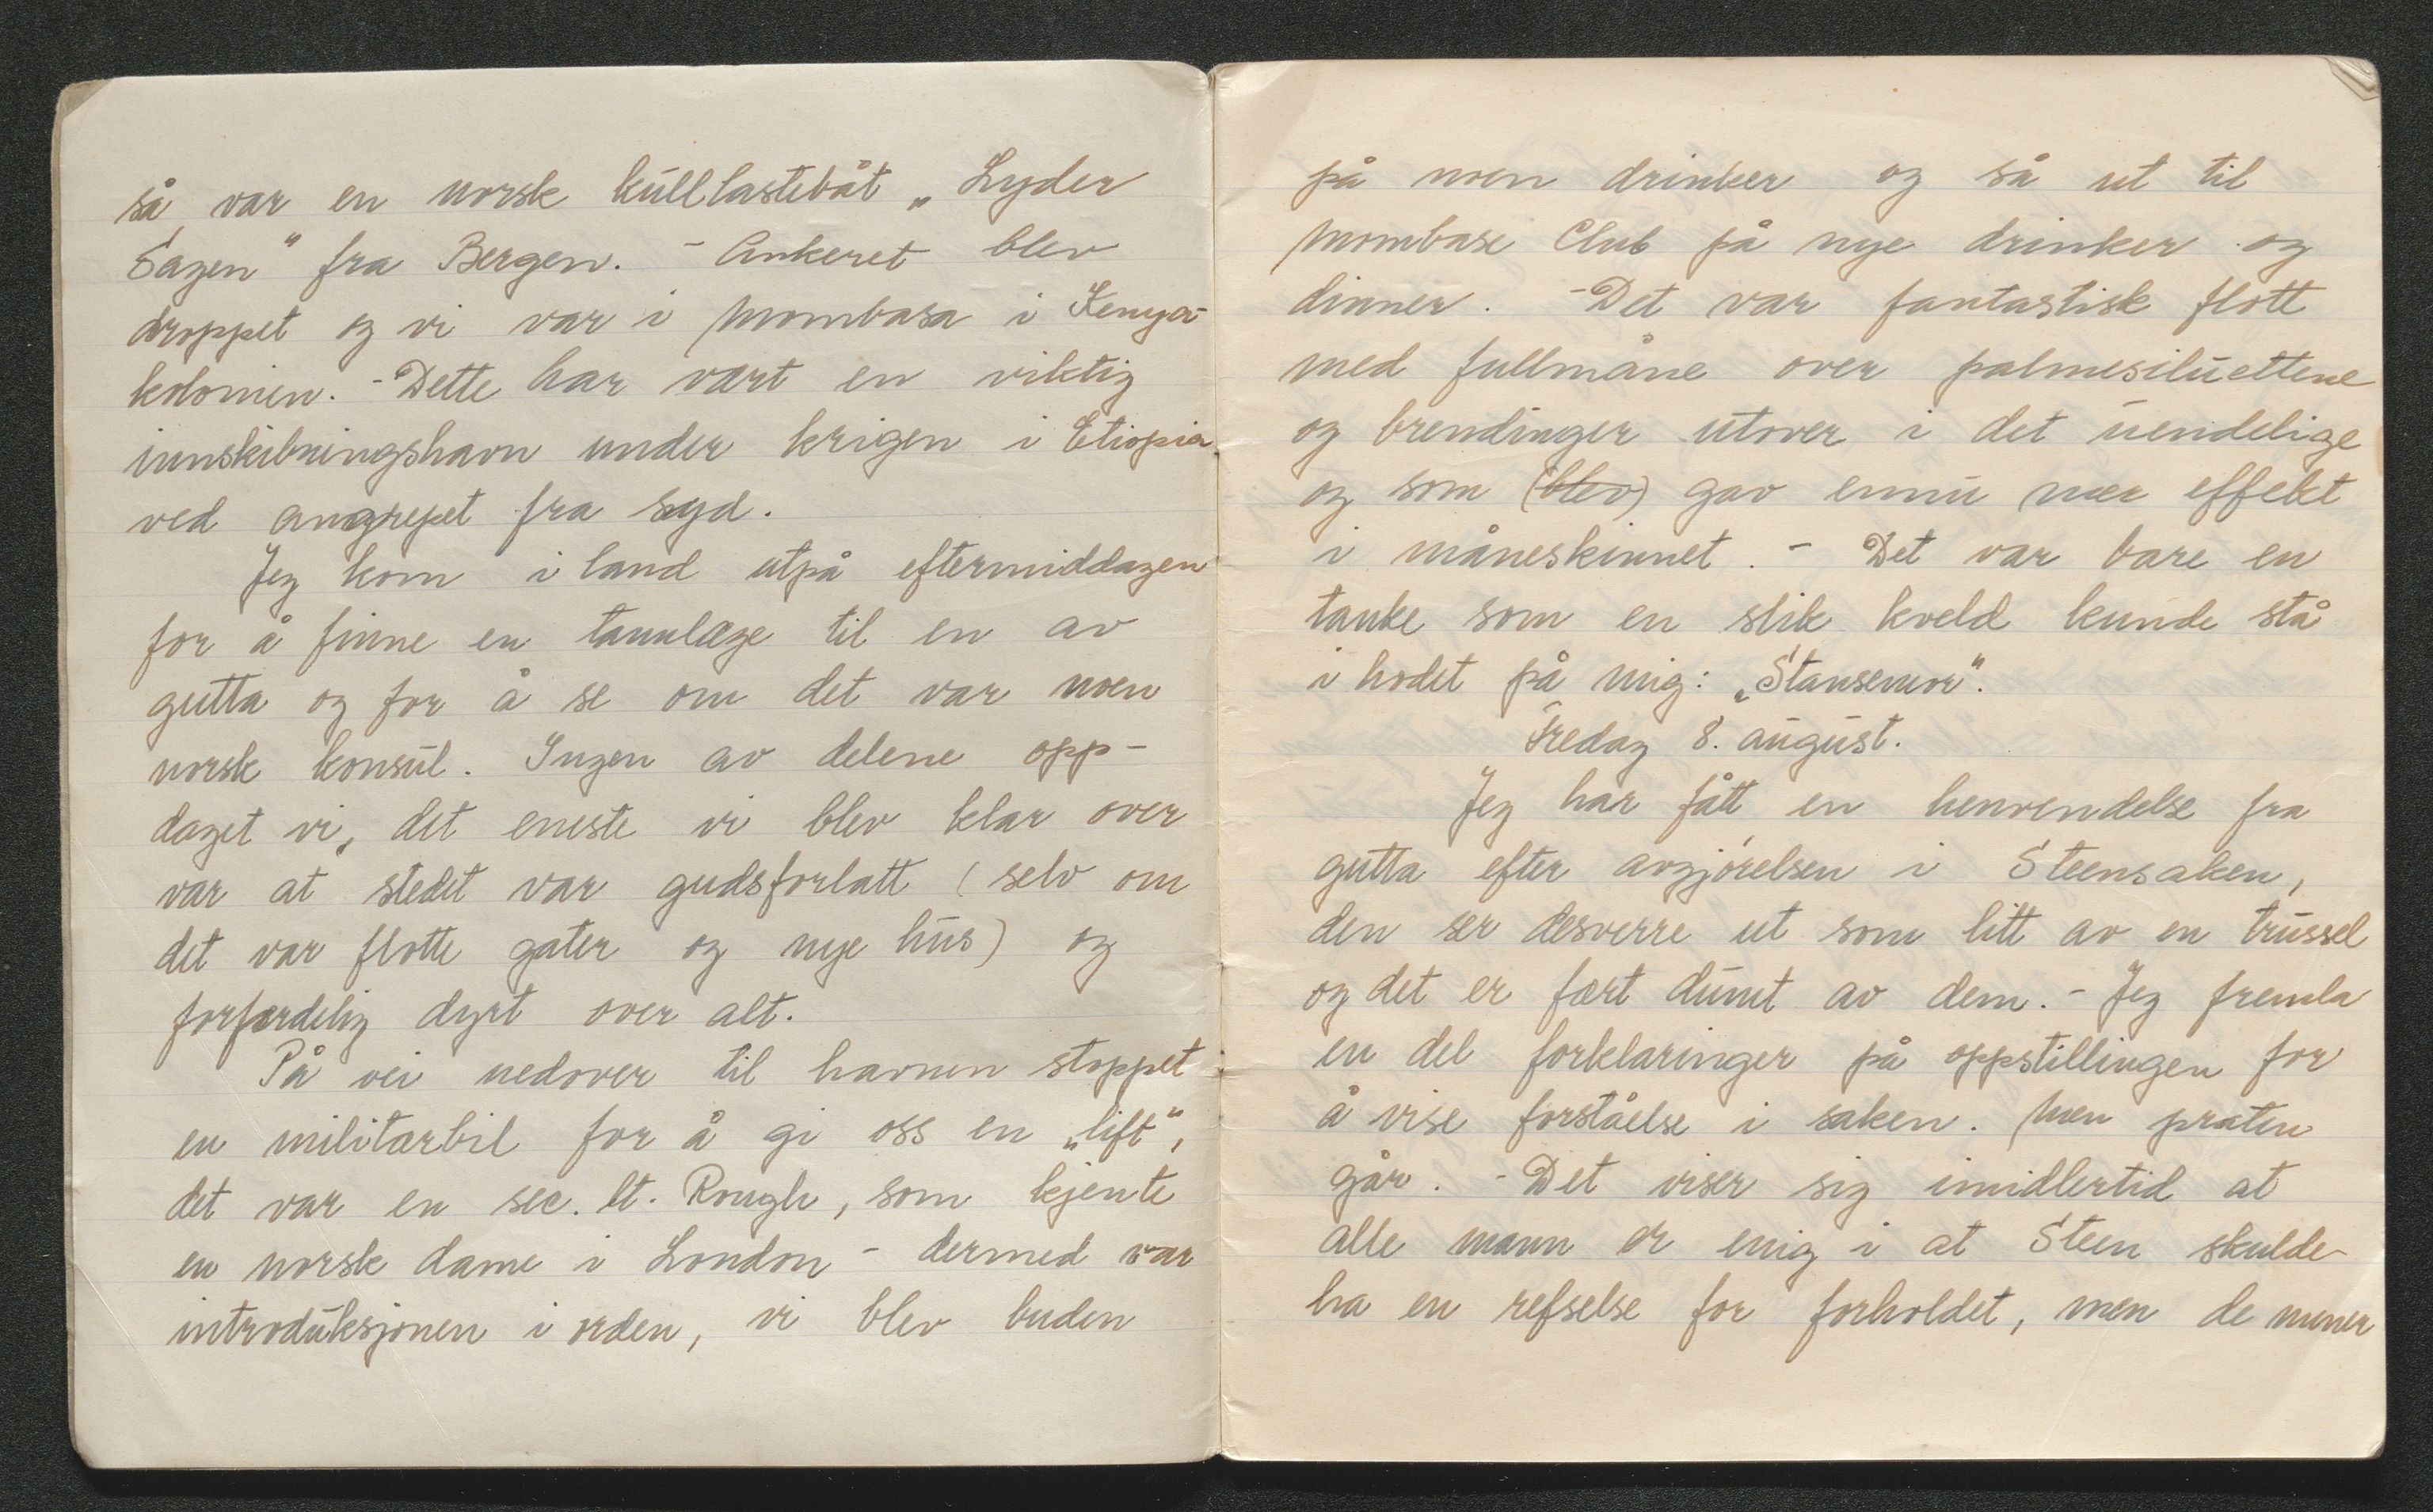 så var en norsk kullastebåt „Lyder
Sagen" fra Bergen. - Ankeret blev
droppet og vi var i Mombasa i Kenya-
kolonien. - Dette har vært en viktig
innskibningshavn under krigen i Etiopia
ved angrepet fra syd.
Jeg kom i land utpå eftermiddagen
for å finne en tannlæge til en av
gutta og for å se om det var noen
norsk konsul. Ingen av delene opp-
daget vi, det eneste vi blev klar over
var at stedet var gudsforlatt (selv om
det var flotte gater og nye hus) og
forferdelig dyrt over alt.
På vei nedover til havnen stoppet
en militærbil for å gi oss en „lift",
det var en sec. lt. Rough, som kjente
en norsk dame i London - dermed var
introduksjonen i orden, vi blev buden
på noen drinker og så ut til
Mombase Club på nye drinker og
dinner. - Det var fantastisk flott
med fullmåne over palmesiluettene
og brendinger utover i det uendelige
og som (blev) gav ennu mer effekt
i måneskinnet. - Det var bare en
tanke som en slik kveld kunde stå
i hodet på mig: „Stansemor".
Fredag 8. august.
Jeg har fått en henvendelse fra
gutta efter avgjørelsen i Steensaken,
den ser desverre ut som litt av en trussel
og det er fært dumt av dem. - Jeg fremla
en del forklaringer på oppstillingen for
å vise forståelse i saken. Men praten
går. - Det viser sig imidlertid at
alle mann er enig i at Steen skulde
ha en refselse for forholdet, men de mener